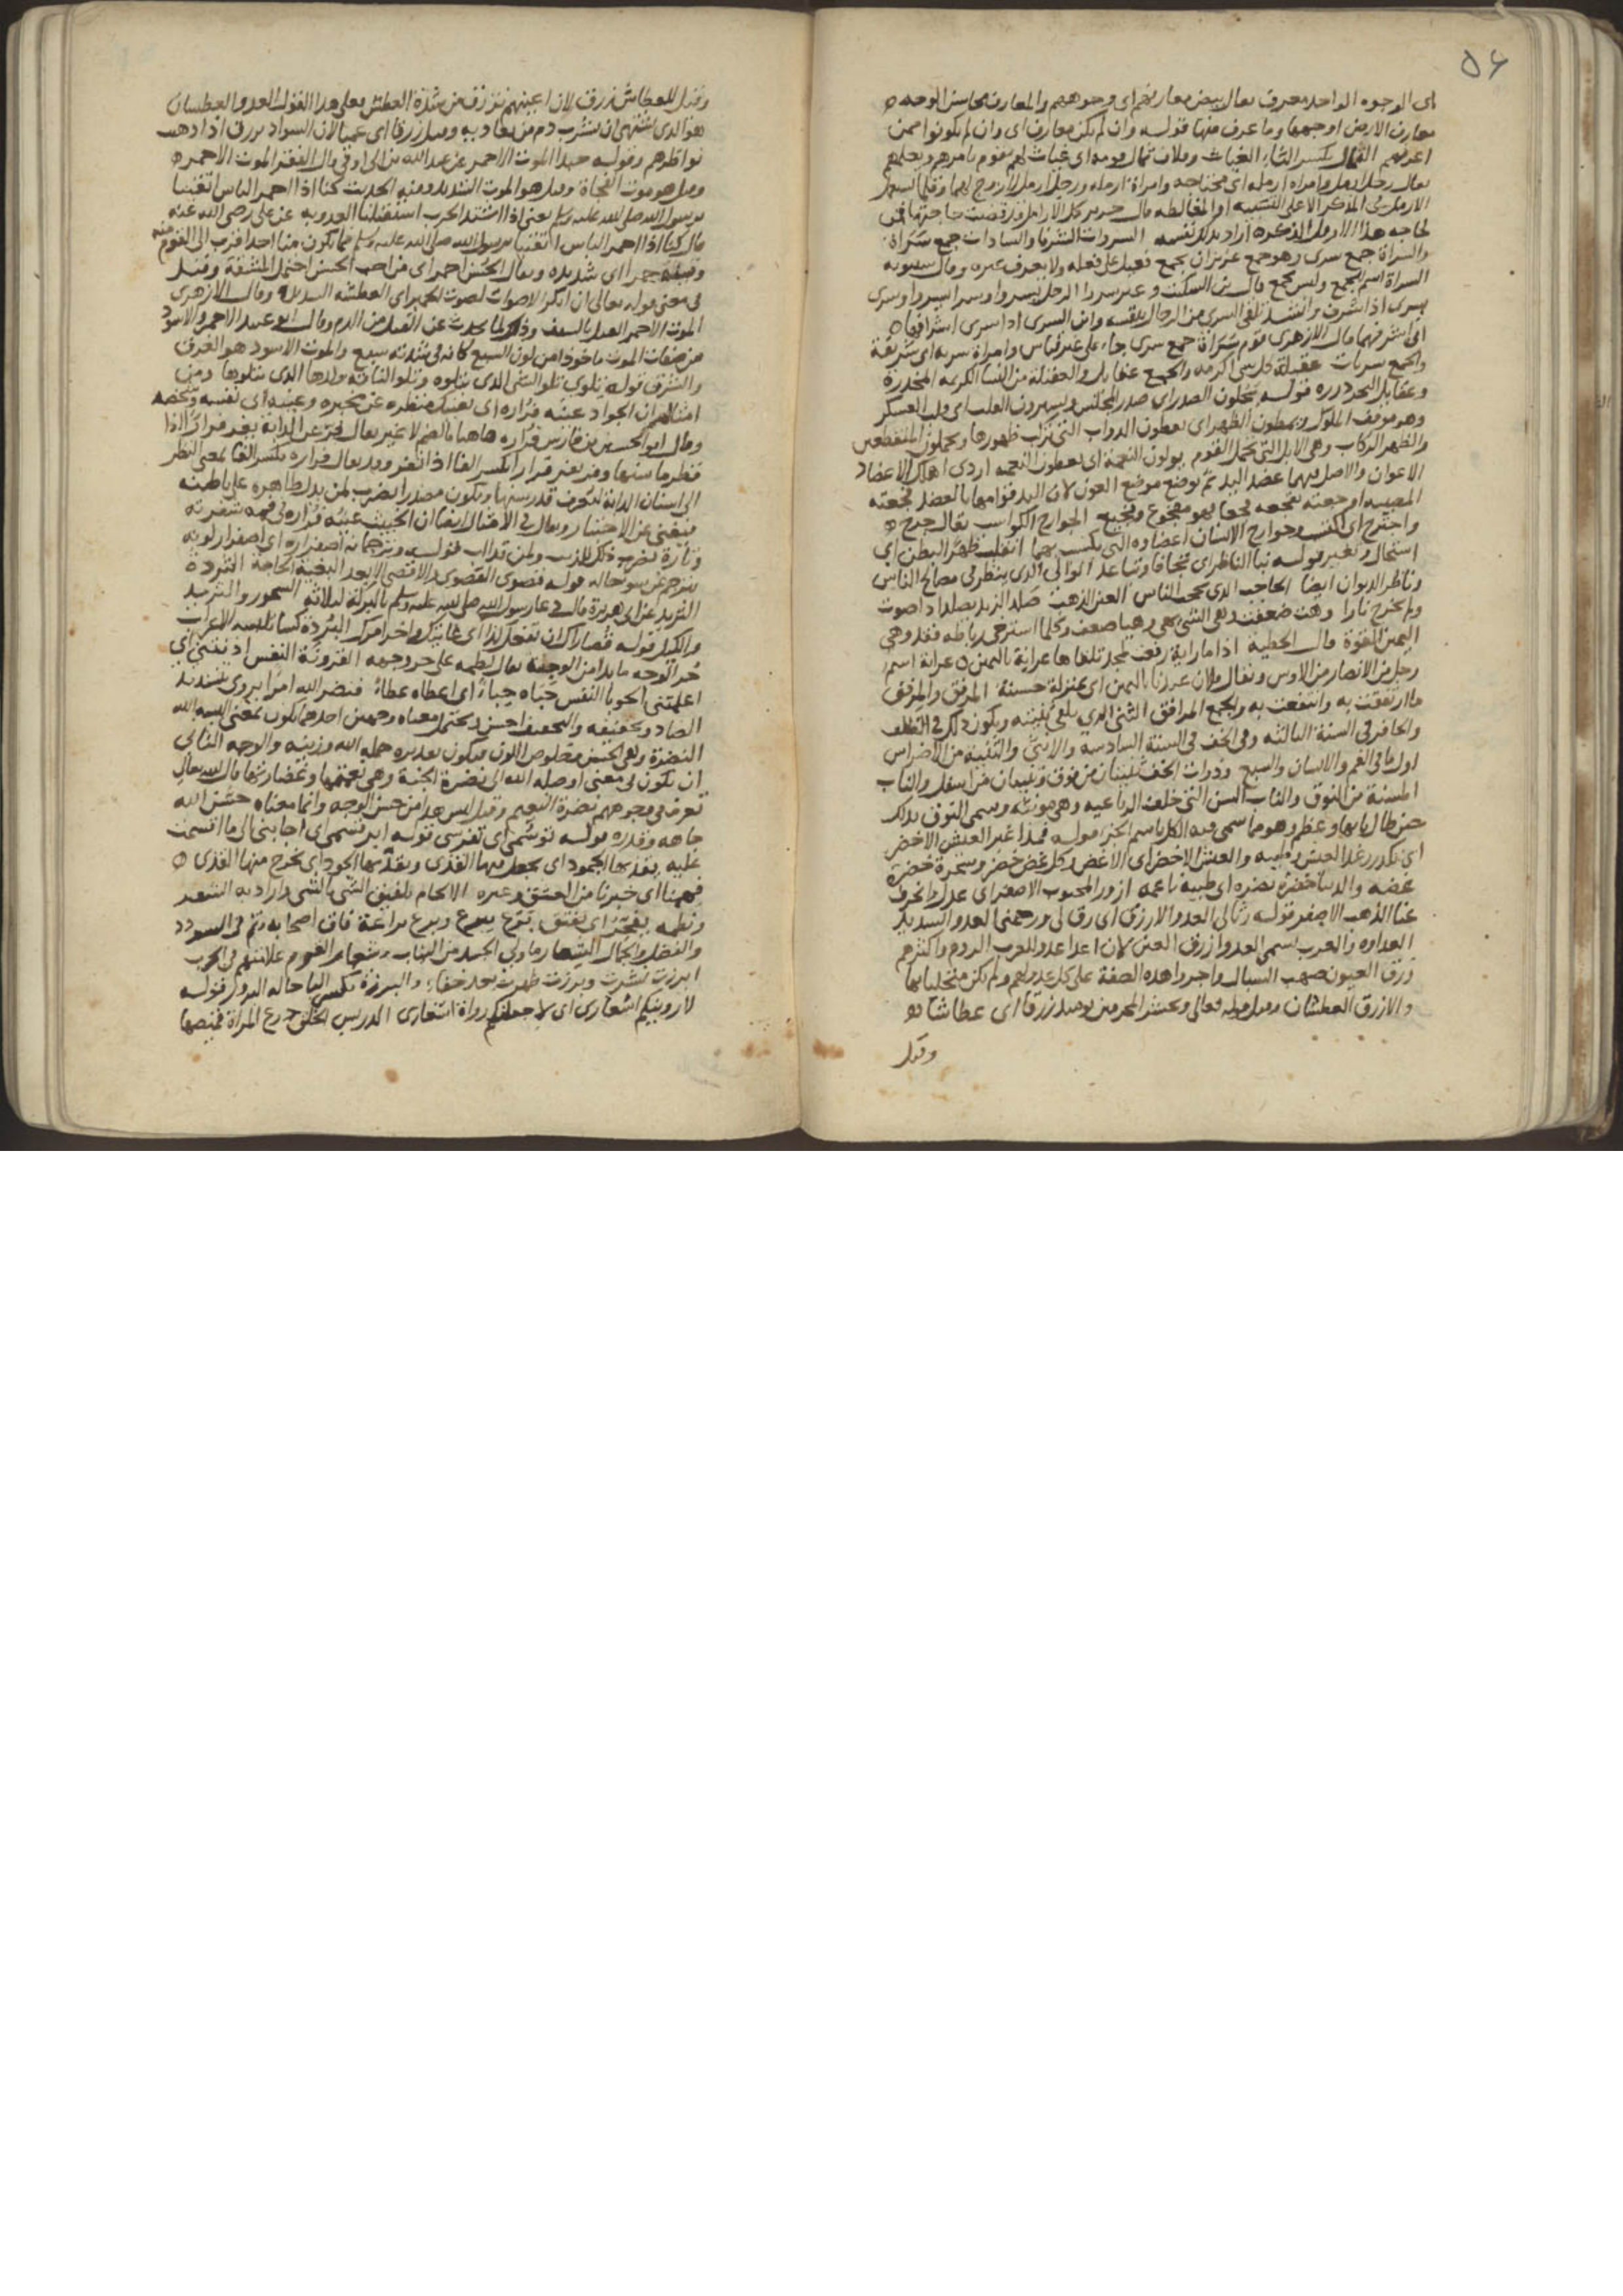 ٥٤
اى الوجوه الواحد معرف يقال بيض معاربهم اى وجوههم والمعارف محاسن الوجه
معارف الارض اوجهها وما عرف منها قوله وان لم يكن معارف اى وان لم يكونوا ممن
اعرفهم الثمال بكسر الثاء الغياث وفلان ثمال قومه اى غياث لهم يقوم بامرهم
يقال رجل ارمل وامراة ارملة اى محتاجة وامراة ارملة ورجل ارمل لا زوج لهما وقلما يستعمل
الارمل فى المذكر الا على التشبيه او المغالطة قال جرير كل الارامل قد قضيت حاجتها فمن
لحاجة هذا الارمل الذكر اراد بذلك نفسه السروات الشرفا والسادات جمع سراة
والسراة جمع سرى وهو جمع عزيز ان يجمع فعيل على فعلة ولا يعرف غيره وقال سيبويه
السراة اسم للجمع وليس بجمع قال ابن السكيت وغيره سرا الرجل يسرو وسرا يسروا وسرى
يسرى اذا شرف وانشد تلقى السرى من الرجال بنفسه وابن السرى اذا سرى اسراهما
اى اشرفهما قال الازهرى قوم سراة جمع سرى جاء على غير قياس وامراة سرية اى شريفة
والجمع سريات عقيلة كل شى اكرمه والجمع عقايل والعقيلة من النسا الكريمة المخدرة
وعقايل البحر درره قوله يحلون الصدر اى صدر المجلس ويسيرون القلب اى قلب العسكر
وهو موقف الملوك ويمطون الظهر اى يعطون الدواب التى تركب ظهورها ويحملون المنقطعين
والظهر الركاب وهى الابل التى تحمل القوم يولون النعمة اى يعطون النعمة اردى اهلك الاعضاد
الاعوان والاصل فيهما عضد اليد ثم توضع موضع العون لان اليد قوامها بالعضد فجعته
المصيبة اوجعته تفجعه فجعا فهو مفجوع وفجيع الجوارح الكواسب يقال جرح
واجترح اى اكتسب وجوارح الانسان اعضاوه التى يكتسب بها انقلب ظهر البطن اى
استحال وتغير قوله نبا الناظر اى تجافا وتباعد الوالى الذى ينظر فى مصالح الناس
وناظر الديوان ايضا الحاجب الذى يحجب الناس العين الذهب صلد الزند يصلد اذا صوت
ولم يخرج نارا وهت ضعفت وهى الشى يهى وهيا ضعف وكلما استرخى رباطه فقد وهى
اليمين القوة قال الحطية اذا ما راية رفعت لمجد تلقاها عرابة باليمين عرابة اسم
رجل من الانصار من الاوس ويقال فلان عندنا باليمين اى بمنزلة حسنة المرفق والمرفق
ما ارتفقت به وانتفعت به والجمع المرافق الثنى الذى يلقى ثنيته ويكون ذلك فى الظلف
والحافر فى السنة الثالثة وفى الخف فى السنة السادسة والانثى والثنية من الاضراس
اول ما فى الفم والانسان والسبع وذوات الخف ثنيتان من فوق وثنيتان من اسفل والناب
المسنة من النوق والناب السن التى خلف الرباعية وهى مونثة وسمى النوق بذلك
حين طال نابها وعظم وهو مما سمى فيه الكل باسم الجزء قوله فمذ اغبر العيش الاخضر
اى تكدر رغد العيش وطيبه والعيش الاخضر اى الاغض وكل غض خضر وشجرة خضرة
غضة والدنيا خضرة نضرة اى طيبة ناعمة ازور المحبوب الاصفر اى عدل وانحرف
عنا الذهب الاصفر قوله رثا لى العدو الازرق اى رق لى ورحمنى العدو الشديد
العداوة والعرب تسمى العدو ازرق العين لان اعدا عدو للعرب الروم واكثرهم
زرق العيون صهب السبال واجروا هذه الصفة على كل عدو لهم ولم يكن متحليا بها
والازرق العطشان وقيل قوله تعالى ونحشر المجرمين يومئذ زرقا اى عطاشا
وقيل
وقيل للعطاش زرق لان اعينهم تزرق من شدة العطش فعلى هذا القول العدو العطشان
هو الذى اشتهى ان يشرب دم من يعاديه وقيل زرقا اى عميا لان السواد يزرق اذا ذهب
نواظرهم وقوله حبذا الموت الاحمر عن عبد الله بن ابى اوفى قال الفقر الموت الاحمر
وقيل هو موت الفجاة وقيل هو الموت الشديد ومنه الحديث كنا اذا احمر الباس اتقينا
برسول الله صلى الله عليه وسلم يعنى اذا اشتد الحرب استقبلنا العدو به عن على رضى الله عنه
قال كنا اذا احمر الباس اتقينا برسول الله صلى الله عليه وسلم فما يكون منا احد اقرب الى القوم منه
حمرا اى شديدة ويقال الحسن احمر اى من احب الحسن احتمل المشقة وقيل
فى معنى قوله تعالى ان انكر الاصوات لصوت الحمير اى العطشة الشديدة وقال الازهرى
الموت الاحمر القتل بالسيف وذلك لما يحدث عن القتل من الدم وقال ابو عبيد الاحمر والاسود
من صفات الموت ماخوذ من لون السبع كانه فى شدته سبع والموت الاسود هو الغرق
والشرق قوله يتلوى تلو الشى الذى يتلوه وتلو الناقة ولدها الذى يتلوها ومن
امثالهم ان الجواد عينه فراره اى يغنيك منظره عن مخبره وعينه اى نفسه وشخصه
وقال ابو الحسين بن فارس فراره هاهنا بالضم لا غير يقال فر عن الدابة يفر فرا اذا
نظر ما سنها وفر يفر فرارا بكسر الفا اذا نفر وقد يقال فراره بكسر الفا بمعنى النظر
الى اسنان الدابة لتعرف قدر سنها ويكون مصدرا يضرب لمن يدل ظاهره على باطنه
فيغنى عن الاختبار ويقال فى الامثال ايضا ان الخبيث عينه فراره فى فمه شفرته
وناره يضرب ذلك للذيب ولمن قوله وترجمانه اصفراره اى اصفرار لونه
يترجم عن سوء حاله قوله قصوى القصوى والاقصى الابعد البغية الحاجة الثردة
الثريد عن ابى هريرة قال دعا رسول الله صلى الله عليه وسلم بالبركة لثلاثة السحور والثريد
والكيل قوله قصاراك ان تفعل كذا اى غايتك واخر امرك البردة كسا تلبسه الاعراب
حر الوجه ما بدا من الوجنة يقال لطمه على حر وجهه القرونة النفس اذنتنى اى
اعلمتنى الحوبا النفس حباه حباءً اى اعطاه عطاءً فنضر الله امرا يروى بتشديد
الضاد وتخفيفه والتخفيف احسن ويحتمل معناه وجهين احدهما يكون بمعنى البسه الله
النضرة وهى الحسن وخلوص اللون فيكون تقديره جمله الله وزينه والوجه الثانى
ان يكون فى معنى اوصله الله الى نضرة الجنة وهى نعمتها وغضارتها قال الله تعالى
تعرف فى وجوههم نضرة النعيم وقيل ليس هذا من حسن الوجه وانما معناه حسن الله
جاهه وقدره قوله توسمى اى تفرسى قوله ابر قسمى اى اجابنى الى ما اقسمت
عليه يقذيها الجمود اى يجعل فيها القذى ويقذيها الجود اى يخرج منها القذى
فهمنا اى خبرنا من العشق وغيره الالحام تلفيق الشى بالشى واراد به الشعر
ونظمه يفجر اى يفتق برع يبرع وبرع براعة فاق اصحابه وتم فى السودد
والفضل والجمال الشعار ما ولى الجسد من الثياب وشعار القوم علامتهم فى الحرب
ابرزت نشرت وبرزت ظهرت بعد خفاء والبرزة بكسر البا حالة البروز قوله
لاروينكم اشعارى اى لاجعلنكم رواة اشعارى الدريس الخلق درع المراة قميصها